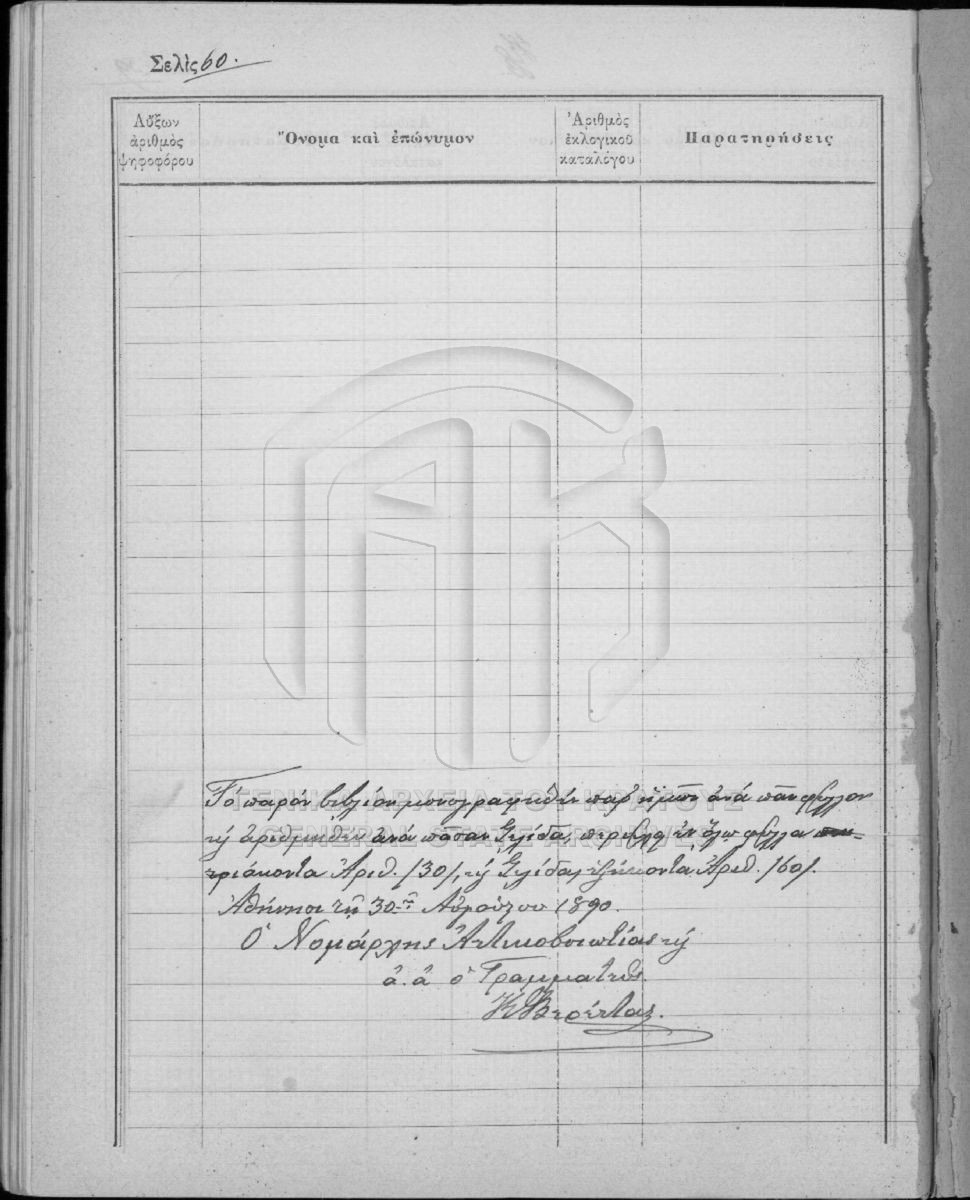 Σελὶς 60.
Αὔξων
ἀριθμὸς
ψηφοφόρου
Ὄνομα καὶ ἐπώνυμον
Ἀριθμὸς
ἐκλογικοῦ
καταλόγου
Παρατηρήσεις
ΓΕΝΙΚΑ ΑΡΧΕΙΑ ΤΟΥ ΚΡΑΤΟΥΣ
GENERAL STATE ARCHIVES
Τὸ παρὸν βιβλίον μονογραφηθὲν παρ' ἡμῶν ἀνὰ πᾶν φύλλον
καὶ ἀριθμηθὲν ἀνὰ πᾶσαν σελίδα, περιέχει ἐν ὅλῳ φύλλα
τριάκοντα ἀριθ. /30/, καὶ σελίδας ἑξήκοντα ἀριθ. /60/.
Ἀθήνησι τῇ 30 Αὐγούστου 1890.
Ὁ Νομάρχης Ἀττικοβοιωτίας καὶ
ἀ. ἀ. ὁ Γραμματεὺς